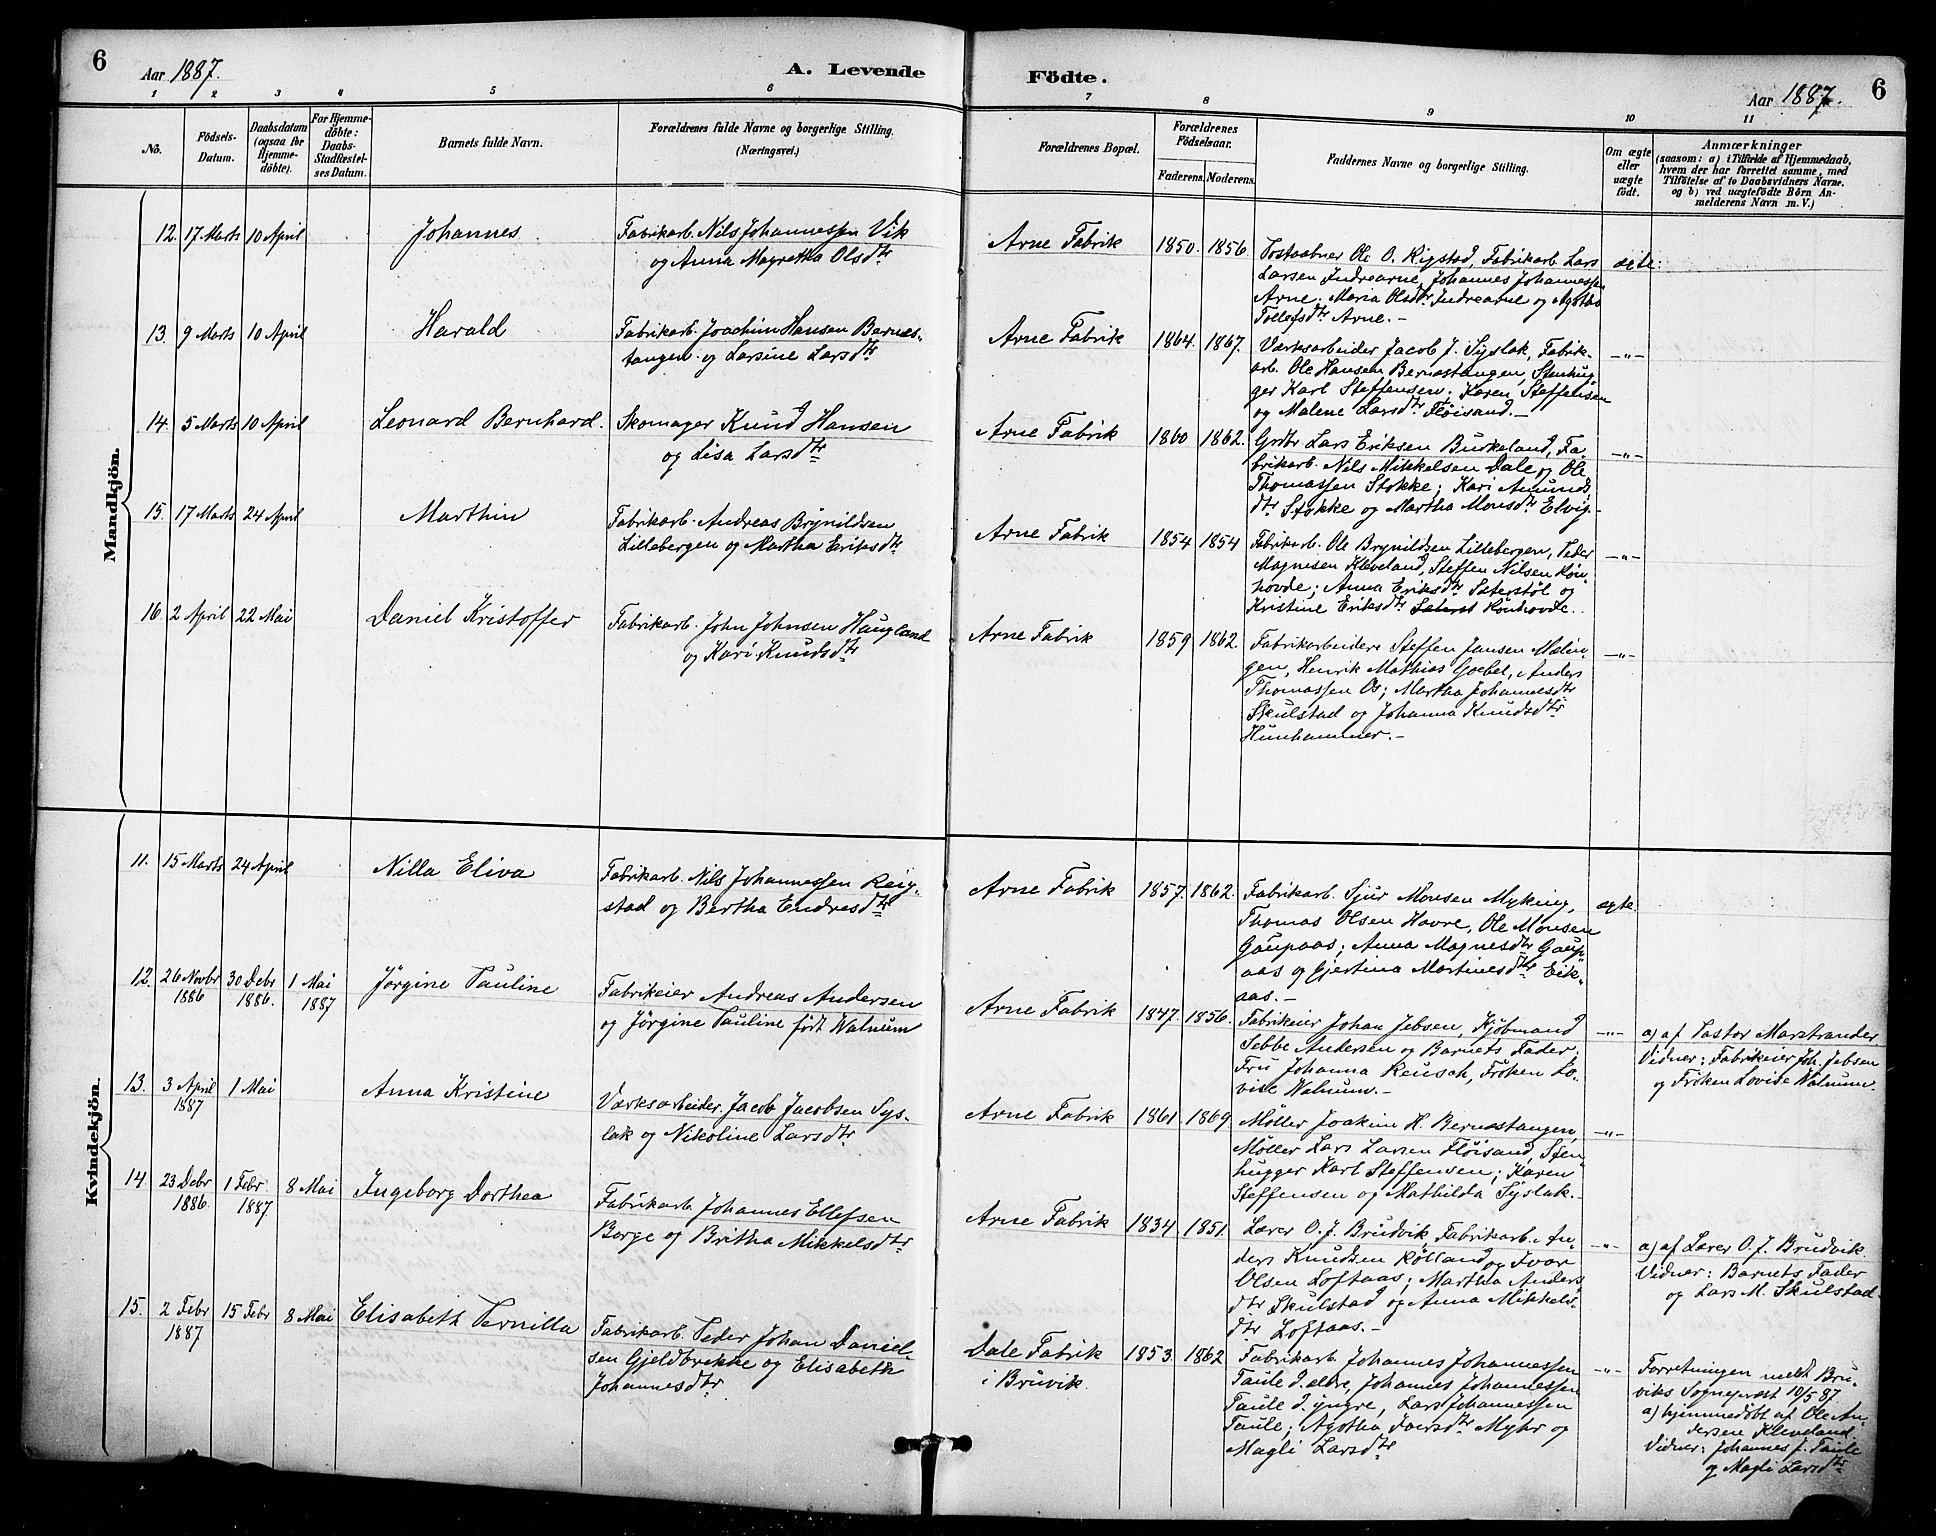 6
Aar 1887.
A. Levende
Födte.
Aar 1887.
6
1 2 3 4 5 6 7 8 9 10 11
No.
Födsels-
Datum.
Daabsdatum
(ogsaa for
Hjemme-
döbte).
For Hjemme-
döbte:
Daabs-
Stadfæstel-
ses Datum.
Barnets fulde Navn.
Forældrenes fulde Navne og borgerlige Stilling.
(Næringsvei.)
Forældrenes Bopæl.
Forældrenes
Födselsaar.
Faderens. Moderens.
Faddernes Navne og borgerlige Stilling.
Om ægte
eller
uægte
födt.
Anmærkninger
(saasom: a) i Tilfælde af Hjemmedaab,
hvem der har forrettet samme, med
Tilföielse af to Daabsvidners Navne.
og b) ved uægtefödte Börn An-
melderens Navn m. V.)
Mandkjön.
12. 17 Marts 10 April Johannes
Fabrikarb. Nils Johannessen Vik
og Anna Magretha Olsdtr
Arne Fabrik 1850. 1856.
Postaabner Ole O. Rigstad, Fabrikarb. Lars
Larsen Indrearne, Johannes Johannessen
Arne. Maria Olsdtr Indrearne og Agotha
Tollefsdtr Arne.-
ægte.
13. 9 Marts 10 April Harald
Fabrikarb. Joachim Hansen Bernæs-
tangen og Larsine Larsdtr
Arne Fabrik 1864. 1867.
Værksarbeider Jacob J. Syslak, Fabrik-
arb. Ole Hansen Bernæstangen, Stenhug-
ger Karl Steffensen; Karen Steffensen
og Malene Larsdtr. Fløisand.-
-„-
14. 5 Marts 10 April Leonard Bernhard.
Skomager Knud Hansen
og Lisa Larsdtr
Arne Fabrik 1860 1862.
Grdbr Lars Eriksen Burkeland, Fa-
brikarb. Nils Mikkelsen Dale og Ole
Thomassen Stokke; Kari Amunds
dtr Stokke og Martha Monsdtr Elvig.-
-„-
15. 17 Marts 24 April Marthin
Fabrikarb. Andreas Brynildsen
Lillebergen og Martha Eriksdtr
Arne Fabrik 1854 1854
Fabrikarb. Ole Brynildsen Lillebergen, Peder
Magnesen Kleveland, Steffen Nilsen Røn-
hovde; Anna Eriksdtr Sæterstøl og
Kristine Eriksdtr Sæterst Rönhovde.
-„-
16. 2 April 22 Mai Daniel Kristoffer
Fabrikarb. John Johnsen Haugland
og Kari Knudsdtr
Arne Fabrik 1859 1862.
Fabrikarbeidere Steffen Jansen Mælin-
gen, Henrik Mathias Goebel, Anders
Thomassen Os; Martha Johannesdtr
Skulstad og Johanna Knudsdtr
Hunhammer.-
-„-
Kvindekjön.
11. 15 Marts 24 April Nilla Eliva
Fabrikarb. Nils Johannessen Reig-
stad og Bertha Endresdtr
Arne Fabrik 1857. 1862.
Fabrikarb. Sjur Monsen Myking,
Thomas Olsen Havre, Ole Monsen
Gaupaas; Anna Magnesdtr Gaup-
aas og Gjertina Martinesdtr Eik-
aas.-
ægte.
12. 26 Novbr 1886 30 Debr 1886. 1 Mai 1887 Jörgine Pauline
Fabrikeier Andreas Andersen
og Jörgine Pauline født Walnum
Arne Fabrik 1847. 1856.
Fabrikeier Johan Jebsen, Kjøbmand
Sebbe Andersen og Barnets Fader,
Fru Johanna Reusch, Frøken Lo-
vise Walnum.-
-„-
a) af Pastor Marstrander.
Vidner: Fabrikeier Joh. Jebsen
og Frøken Lovise Walnum.
13. 3 April 1887 1 Mai Anna Kristine
Værksarbeider. Jacob Jacobsen Sys-
lak og Nikoline Larsdtr
Arne Fabrik 1861. 1869
Møller Joakim H. Bernæstangen,
Møller Lars Larsen Fløisand, Sten-
hugger Karl Steffensen; Karen
Steffensen og Mathilda Syslak.-
-„-
14. 23 Debr 1886. 1 Febr. 1887. 8 Mai Ingeborg Dorthea
Fabrikarb Johannes Ellefsen
Borge og Britha Mikkelsdtr
Arne Fabrik 1834 1851.
Lærer O. J. Brudvik, Fabrikarb. An-
ders Knudsen Rølland og Ivar
Olsen Loftaas; Martha Anders
dtr Skulstad og Anna Mikkels-
dtr Loftaas.-
-„-
a) af Lærer O. J. Brudvik.
Vidner: Barnets Fader
og Lars M. Skulstad.
15. 2 Febr 1887 15 Febr 8 Mai Elisabeth Pernilla
Fabrikarb. Peder Johan Daniel-
sen Gjeldbrekke og Elisabeth
Johannesdtr.
Dale Fabrik
i Bruvik.
1853. 1862
Fabrikarb. Johannes Johannessen
Taule d. eldre, Johannes Johannessen
Taule d. yngre, Lars Johannessen
Taule; Agotha Iversdtr Myhr og
Magli Larsdtr
-„-
Forretningen meldt Bru-
viks Sognepræst 10/5 87.
a) hjemmedøbt af Ole An-
dersen Kleveland.
Vidner: Johannes J. Taule
og Magli Larsdtr